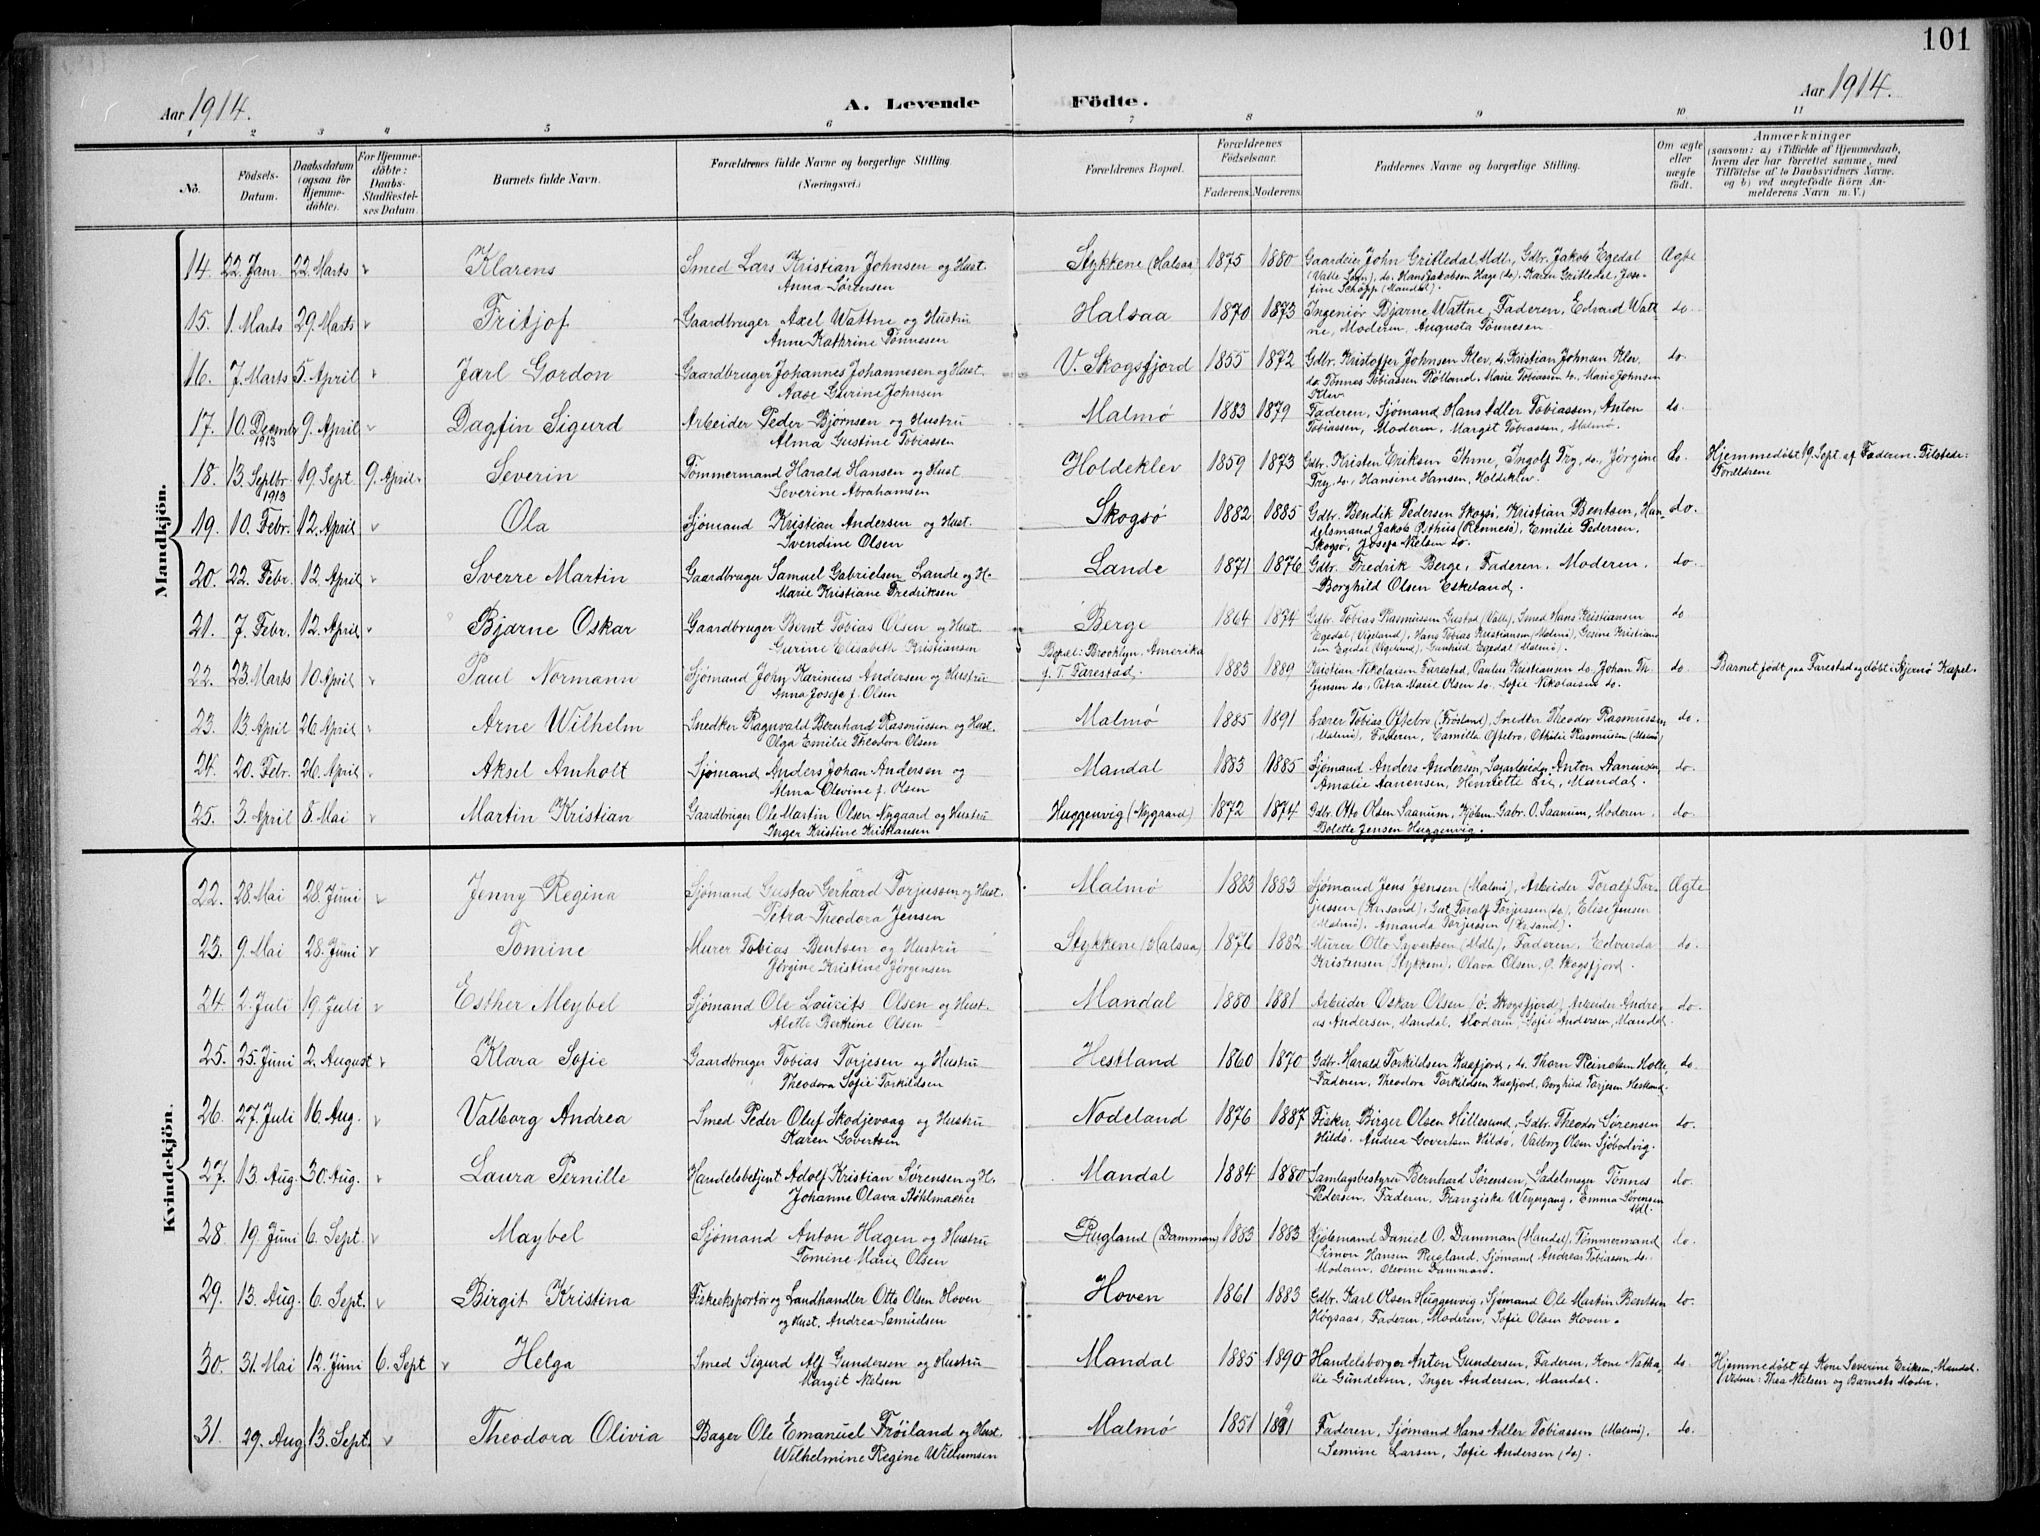 101
Aar 1914.
A. Levende Födte.
Aar 1914.
1 2 3 4 5 6 7 8 9 10 11
No.
Födsels-Datum.
Daabsdatum (ogsaa for Hjemmedöbte).
For Hjemmedöbte: Daabs-Stadfæstelses Datum.
Barnets fulde Navn.
Forældrenes fulde Navne og borgerlige Stilling (Næringsvei).
Forældrenes Bopæl.
Forældrenes Födselsaar.
Faderens. Moderens.
Faddernes Navne og borgerlige Stilling.
Om ægte eller uægte födt.
Anmærkninger (saasom: a) i Tilfælde af Hjemmedaab, hvem der har forrettet samme, med Tilföielse af to Daabsvidners Navne, og b) ved uægtefödte Börn Anmelderens Navn m. V.)
Mandkjön.
14. 22. Janr. 22. Marts Klarens Smed Lars Kristian Johnsen og Hust. Stykkene (Halsaa) 1875 1880 Gaardeier John Grilledal Mdl., Gdbr. Jakob Egedal Ægte
Anna Sørensen (Valle Sogn), do. Hans Jakobsen Hage (do). Karen Grilledal, Josefine Schöpp (Mandal).
15. 1. Marts 29. Marts Fritjof Gaardbruger Axel Wattne og Hustru Halsaa 1870 1873 Ingeniør Bjarne Wattne, Faderen, Edvard Watt= do.
Anne Kathrine Tønnesen ne, Moderen, Augusta Tønnesen
16. 7. Marts 5. April Jarl Gordon Gaardbruger Johannes Johannesen og Hust. V. Skogsfjord 1855 1872 Gdbr. Kristoffer Johnsen Klev, do. Kristian Johnsen Klev. do.
Aase Gurine Johnsen do. Tønnes Tobiassen Rölland. Marie Tobiassen do. Marie Johnsen Klev.
17. 10. Decmr 1913 9. April Dagfin Sigurd Arbeider Peder Bjørnsen og Hustru Malmø 1883 1879 Faderen, Sjømand Hans Adler Tobiassen, Anton do.
Alma Gustine Tobiassen Tobiassen, Moderen, Margit Tobiassen, Malmø.
18. 13. Septbr 1913 19. Sept. 9. April Severin Tømmermand Harald Hansen og Hust Holdeklev 1859 1873 Gdbr. Kristen Eriksen Ihme, Ingolf Try, do., Jørgine do. Hjemmedøbt 19. Sept. af Faderen. Tilstede: Forældrene
Severine Abrahamsen Try, do., Hansine Hansen, Holdeklev.
19. 10. Febr. 12. April Ola Sjømand Kristian Andersen og Hust. Skogsø 1882 1885 Gdbr. Bendik Pedersen Skogsø, Kristian Bentsen, Han= do.
Svendine Olsen delsmand Jakob Röthus (Rennesö), Emilie Pedersen, Skogsø, Josefa Nielsen do.
20. 22. Febr. 12. April Sverre Martin Gaardbruger Samuel Gabrielsen Lande og H. Lande 1871 1876 Gdbr. Fredrik Berge, Faderen, Moderen, do.
Marie Kristiane Fredriksen Borghild Olsen Eskeland.
21. 7. Febr. 12. April Bjarne Oskar Gaardbruger Bernt Tobias Olsen og Hust. Berge 1864 1874 Gdbr. Tobias Rasmussen Gustad (Valle), Smed Hans Kristiansen do
Gurine Elisabeth Kristiansen Egedal (Vigeland), Hans Tobias Kristiansen (Malmö), Gesine Kristian sen Egedal (Vigeland), Gunhild Egedal (Malmø).
22. 23. Marts 10. April Paul Normann Sjømand John Karinius Andersen og Hustru Bopæl: Brooklyn, Amerika f. T. Farestad. 1883 1889 Kristian Nikolaisen Farestad, Paulus Kristiansen do. Johan Th. do. Barnet født paa Farestad og døbt i Skjernø Kapel.
Anna Josefa f. Olsen Jensen do. Petra Marie Olsen do. Sofie Nikolaisen do.
23. 13. April 26. April Arne Wilhelm Snedker Ragnvald Bernhard Rasmussen og Hust. Malmø 1885 1891 Lærer Tobias Oftebro (Frösland), Snedker Theodor Rasmussen do.
Olga Emilie Theodora Olsen (Malmö), Faderen, Camilla Oftebro, Othilie Rasmussen (Malmö)
24. 20. Febr. 26. April Aksel Arnholt Sjømand Anders Johan Andersen og Mandal 1883 1885 Sjømand Anders Andersen, Anton Aanensen, do.
Alma Olevine f. Olsen Amalie Aanensen, Henriette Lie, Mandal.
25. 3. April 8. Mai Martin Kristian Gaardbruger Ole Martin Olsen Nygaard og Hustru Huggenvig (Nygaard) 1872 1874 Gdbr. Otto Olsen Saanum, Kjøbm. Gabr. O. Saanum, Moderen, do.
Inger Kristine Kristiansen Bolette Jensen Huggenvig.
Kvindekjön.
22. 28. Mai 28. Juni Jenny Regina Sjømand Gustav Gerhard Torjussen og Hust. Malmø 1883 1883 Sjømand Jens Jensen (Malmö), Arbeider Toralf Tor= Ægte
Petra Theodora Jensen jussen (Kr.sand), Gut Toralf Torjussen (do), Elise Jensen (Malmö). Amanda Torjussen (Kr.sand).
23. 9. Mai 28. Juni Tomine Murer Tobias Bentsen og Hustru Stykkene (Halsaa) 1876 1882 Murer Otto Syvertsen (Mdl.), Faderen, Edvarda do.
Jørgine Kristine Jørgensen Kristensen (Stykkene), Olava Olsen, ö. Skogsfjord.
24. 2. Juli 19. Juli Esther Meybel Sjømand Ole Laurits Olsen og Hust. Mandal 1880 1881 Arbeider Oskar Olsen (ö. Skogsfjord), Arbeider Andre= do.
Alette Berthine Olsen as Andersen, Mandal, Moderen, Sofie Andersen, Mandal
25. 25. Juni 2. August Klara Sofie Gaardbruger Tobias Torjesen og Hustru Hestland 1860 1870 Gdbr. Harald Torkildsen Kaafjord, do. Thorn Reinertsen Holte, do.
Theodora Sofie Torkildsen Faderen, Theodora Torkildsen Kaafjord, Borghild Torjesen Hestland.
26. 27. Juli 16. Aug. Valborg Andrea Smed Peder Oluf Skodjevaag og Hustru Nodeland 1876 1887 Fisker Birger Olsen Hillesund, Gdbr. Theodor Sørensen do.
Karen Govertsen Hildö, Andrea Govertsen Hildö, Valborg Olsen Sjöbodvig.
27. 13. Aug. 30. Aug. Laura Pernille Handelsbetjent Adolf Kristian Sørensen og H. Mandal 1884 1880 Samlagsbestyrer Bernhard Sørensen, Sadelmager Tönnes do.
Johanne Olava Støhlmacher Pedersen, Faderen, Franziska Weyergang, Emma Sørensen Mdl.
28. 19. Juni 6. Sept. Maybel Sjømand Anton Hagen og Hustru Rugland (Damman) 1883 1883 Kjøbmand Daniel O. Damman (Mandal), Tømmermand do.
Tomine Marie Olsen Simon Hansen Rugland, Sjømand Andreas Tobiassen do. Moderen, Olevine Dammand.
29. 13. Aug. 6. Sept. Birgit Kristina Fiskeeksportør og Landhandler Otto Olsen Hoven Hoven 1861 1883 Gdbr. Karl Olsen Huggenvig, Sjømand Ole Martin Bentsen do.
og Hust. Andrea Samuelsen Høgsaas, Faderen, Moderen, Sofie Olsen Hoven.
30. 31. Mai 12. Juni 6. Sept Helga Smed Sigurd Alf Gundersen og Hustru Mandal 1885 1890 Handelsborger Anton Gundersen, Faderen, Kone Natha= do. Hjemmedøbt af Kone Severine Eriksen, Mandal.
Margit Nielsen lie Gundersen, Inger Andersen, Mandal. Vidner: Thea Nielsen og Barnets Moder.
31. 29. Aug. 13. Sept. Theodora Olivia Bager Ole Emanuel Frøiland og Hust. Malmø 1851 Faderen, Sjømand Hans Adler Tobiassen (Malmö), do.
Wilhelmine Regine Willumsen Semine Larsen, Sofie Andersen (do).